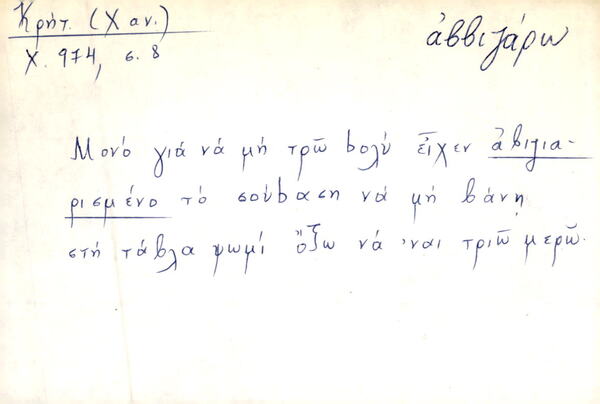 Κρήτ. (Χαν.)
Χ. 974, σ. 8
ἀββιζάρω
Μονό γιά νά μή τρῶ βολύ εἶχεν ἀβιζια-
ρισμένο τό σούβαση νά μή βάνῃ
στή τάβλα ψωμί ὄξω νά 'ναι τριῶ μερῶ.